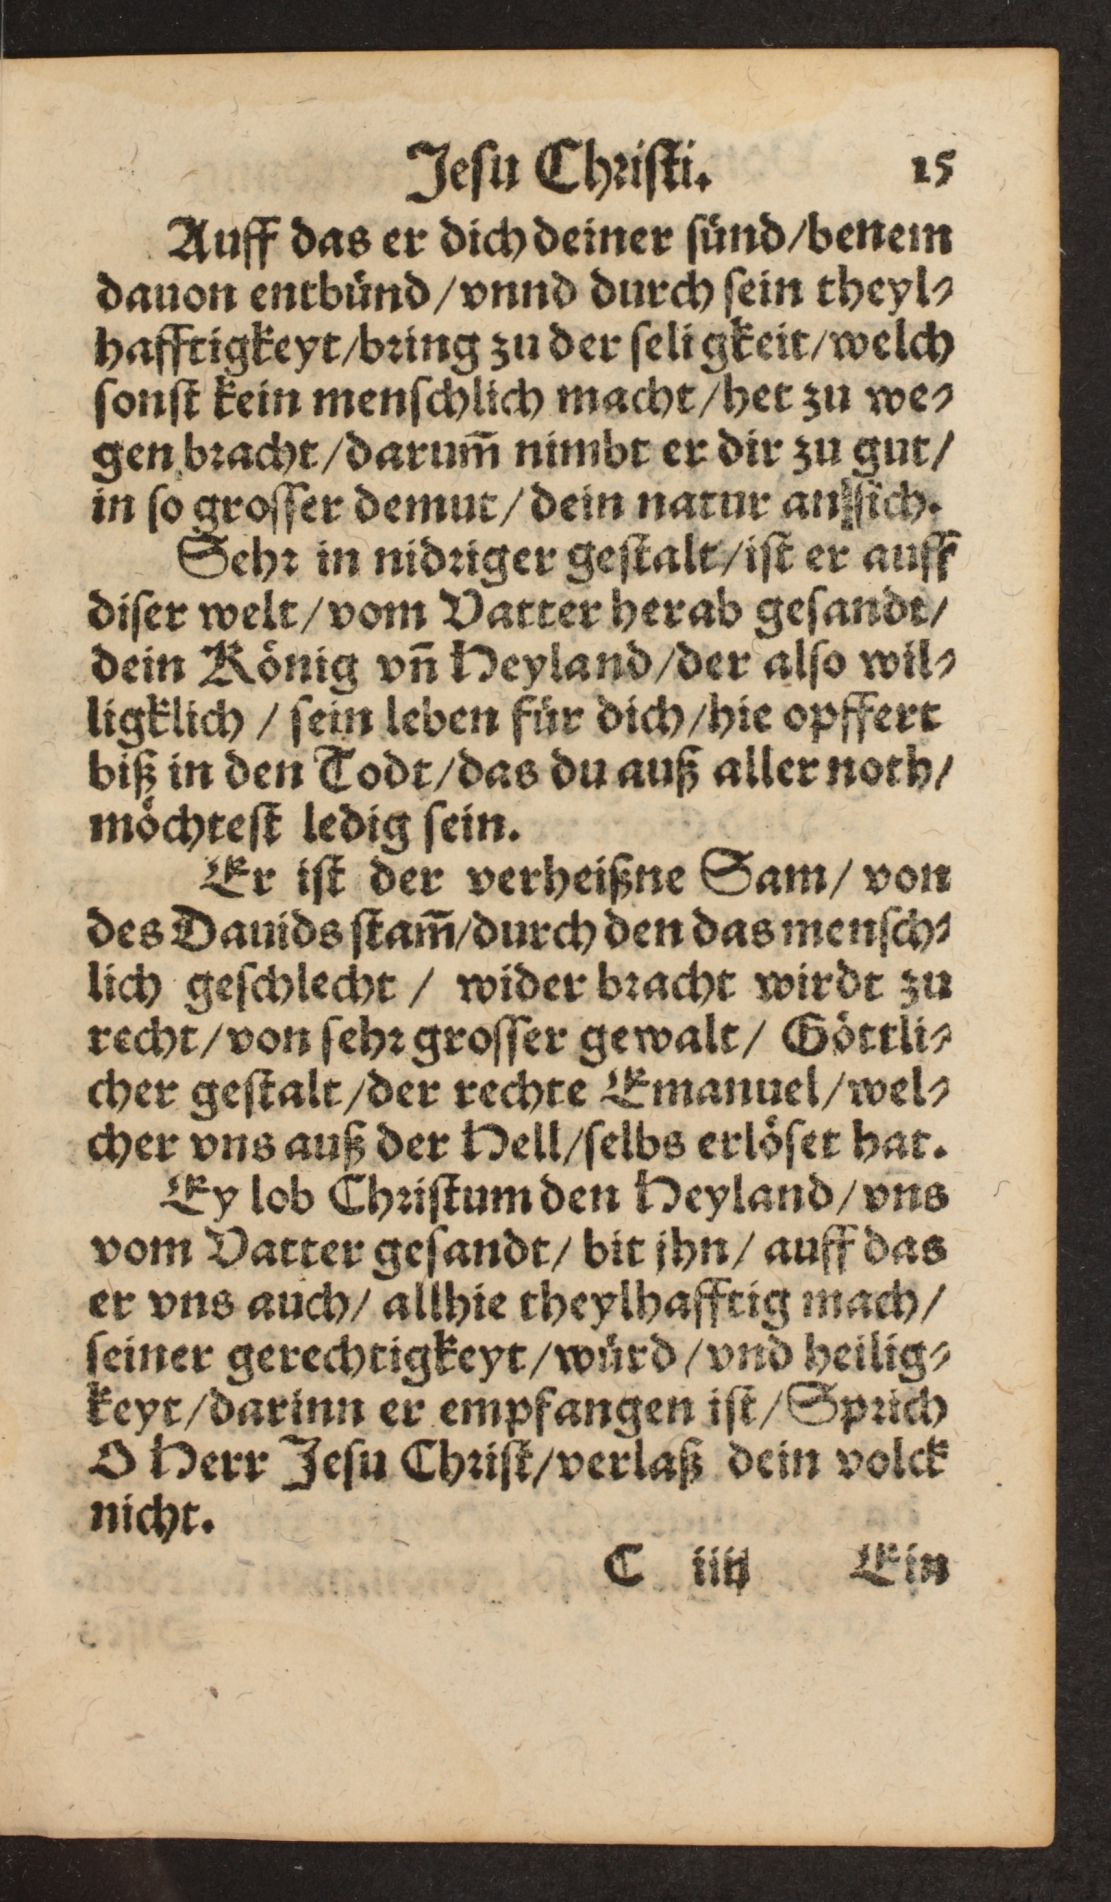 Jesu Christi. 15
Auff das er dich deiner sünd/benem
dauon entbünd/vnnd durch sein theyl-
hafftigkeyt/bring zu der seligkeit/welch
sonst kein menschlich macht/het zu we-
gen bracht/darum̃ nimbt er dir zu gut/
in so grosser demut/dein natur an sich.
Sehr in nidriger gestalt/ist er auff
diser welt/vom Vatter herab gesandt/
dein König vñ Heyland/der also wil-
ligklich / sein leben für dich/hie opffert
biß in den Todt/das du auß aller noth/
möchtest ledig sein.
Er ist der verheißne Sam/ von
des Dauids stam̃/durch den das mensch-
lich geschlecht / wider bracht wirdt zu
recht/von sehr grosser gewalt/ Göttli-
cher gestalt/der rechte Emanuel/wel-
cher vns auß der Hell/selbs erlöset hat.
Ey lob Christum den Heyland/vns
vom Vatter gesandt/ bit jhn/ auff das
er vns auch/ allhie theylhafftig mach/
seiner gerechtigkeyt/würd/vnd heilig-
keyt/darinn er empfangen ist/Sprich
O Herr Jesu Christ/verlaß dein volck
nicht.
C iiij Ein